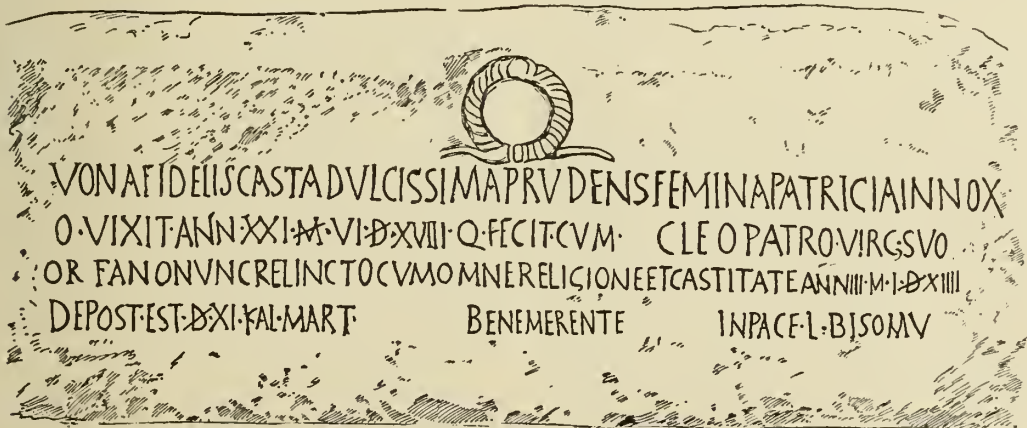 VONAFIDELISCASTADVLCISSIMAPRVDENSFEMINAPATRICIAINNOX
O·VIXIT·ANN·XXI·M·VI·D·XVIII·Q·FECIT·CVM· CLEOPATRO·VIRG·SVO
ORFANONVNCRELINCTOCVMOMNERELIGIONEETCASTITATEANNIII·M·I·D·XIIII
DEPOST·EST·D·XI·KAL·MART· BENEMERENTE INPACE·L·BISOMV